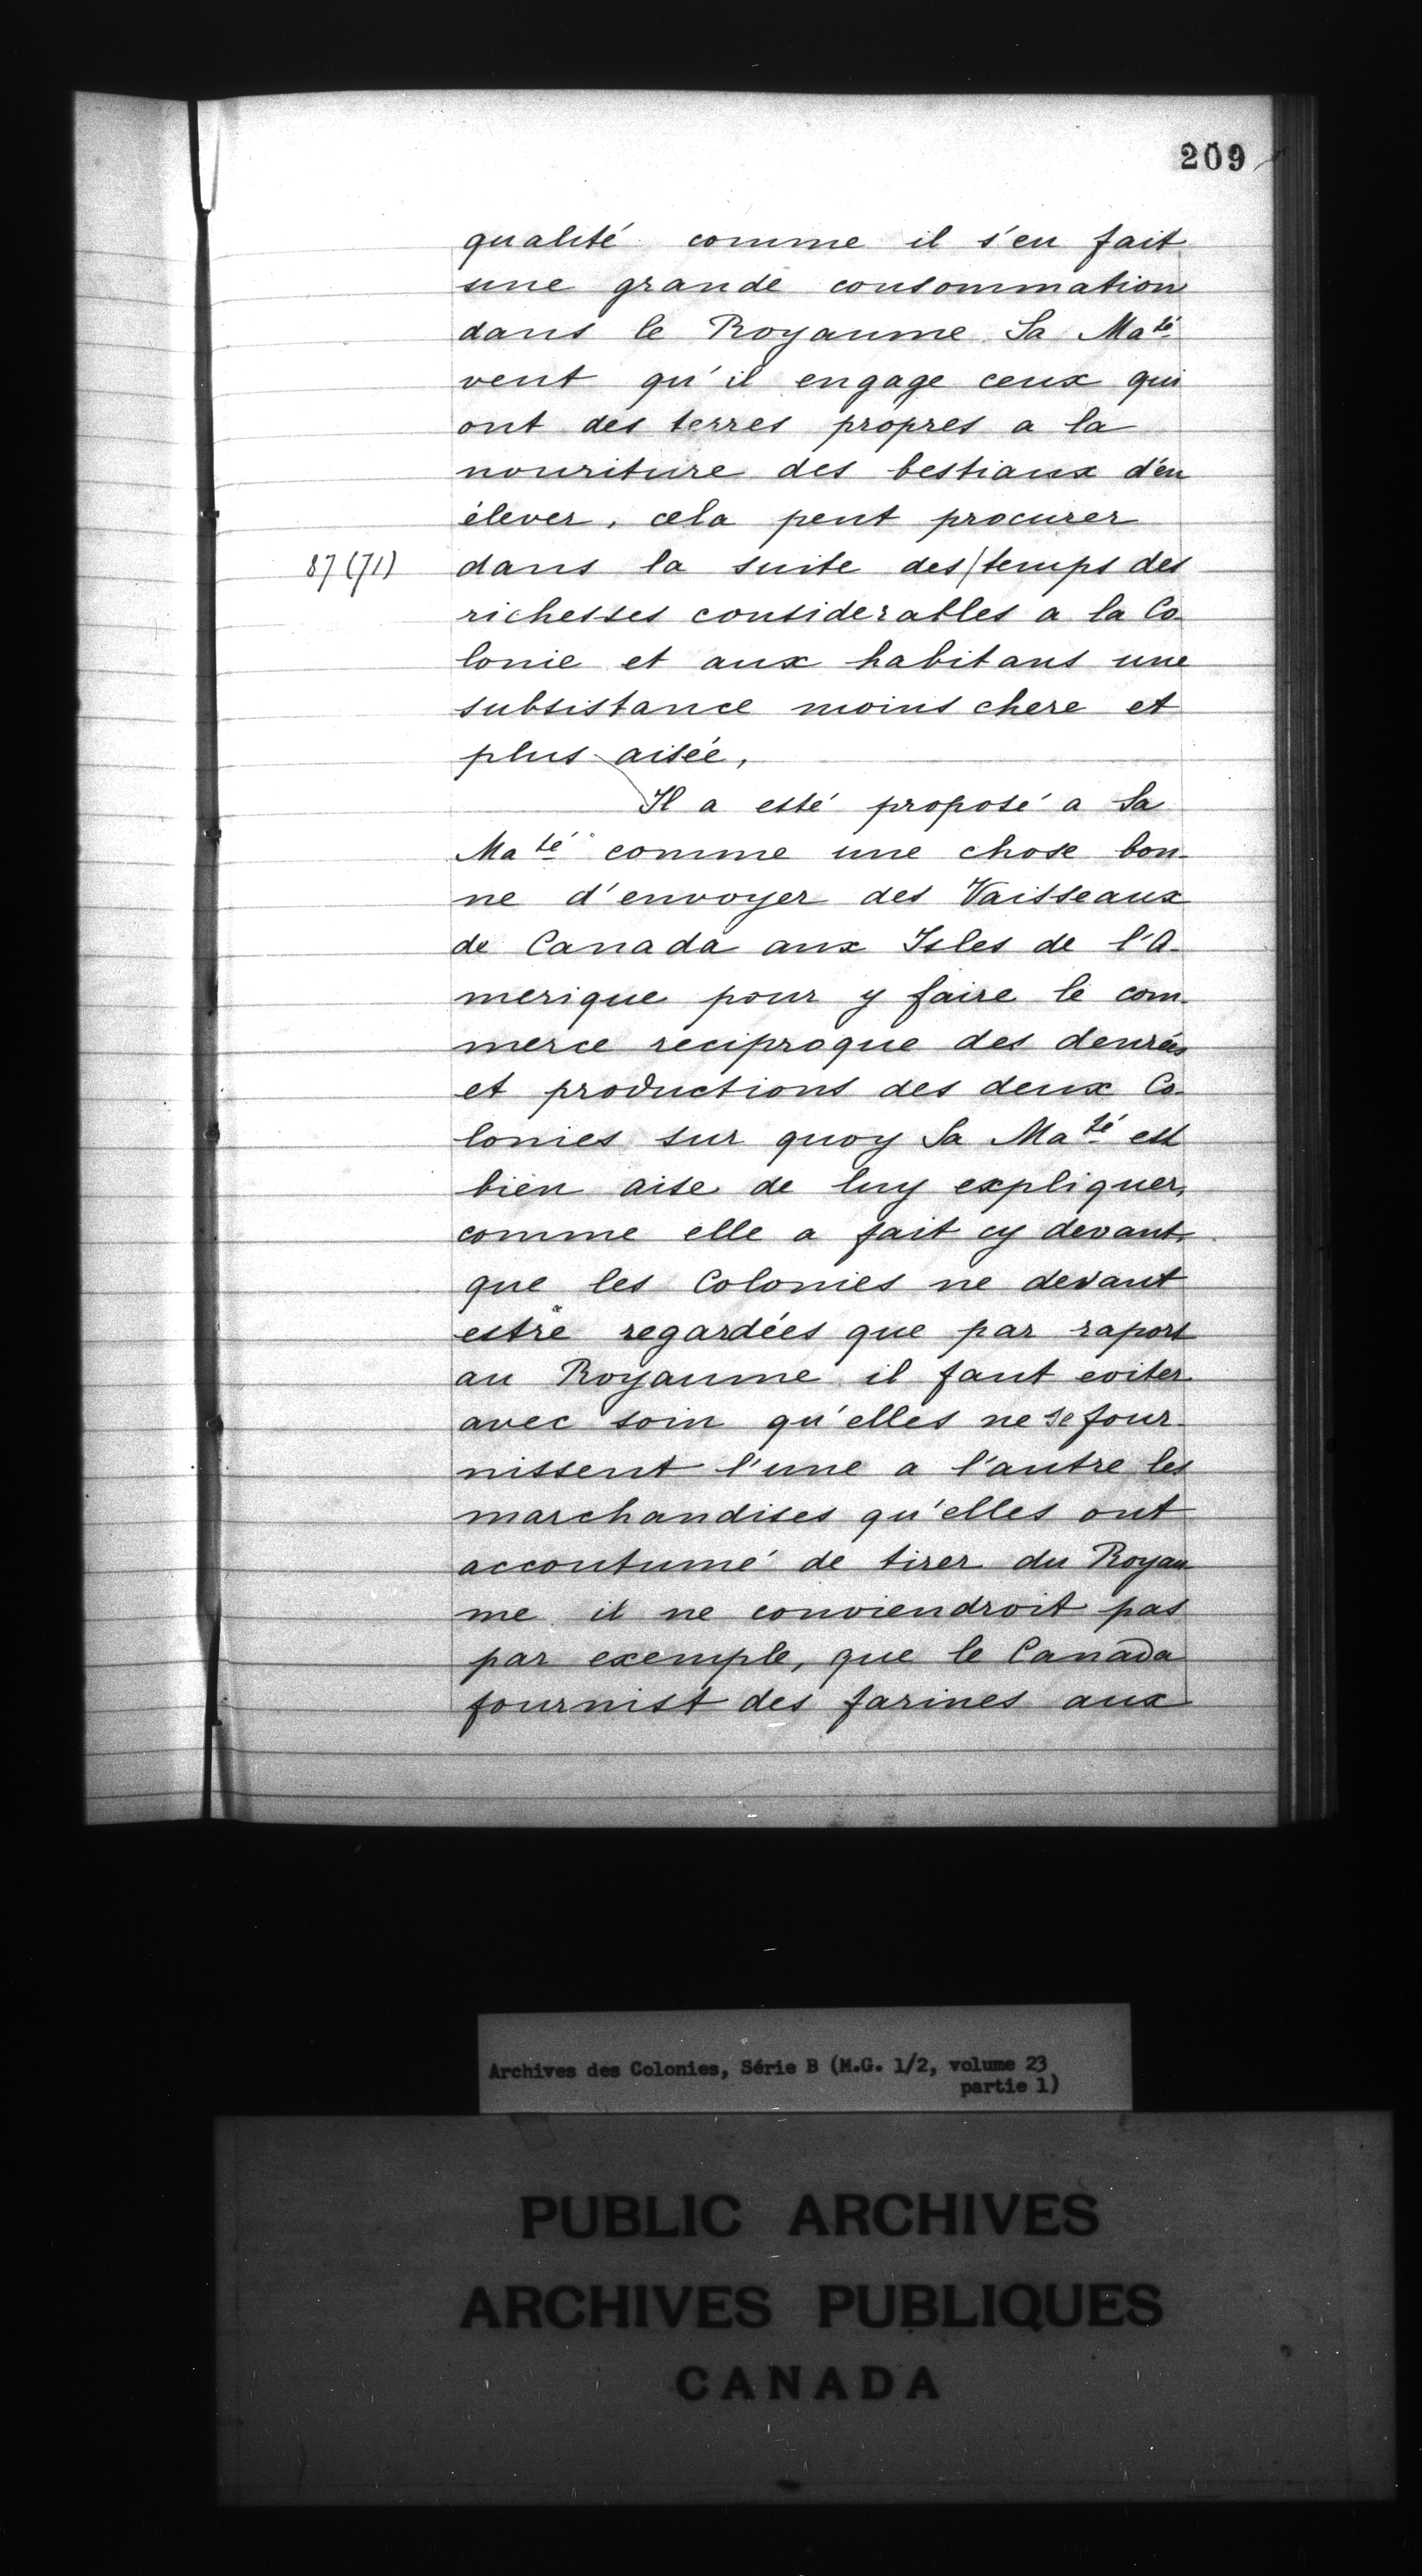 209
qualité comme il s'en fait
une grande consommation
dans le Royaume. Sa Maté
veut qu'il engage ceux qui
ont des terres propres a la
nouriture des bestiaux d'en
élever, cela peut procurer
87 (71) dans la suite des/temps des
richesses considerables a la Co-
lonie et aux habitans une
subsistance moins chere et
plus aisée,
Il a esté proposé a Sa
Maté comme une chose bon-
ne d'envoyer des Vaisseaux
de Canada aux Isles de l'A-
merique pour y faire le com-
merce reciproque des denrées
et productions des deux Co-
lonies sur quoy Sa Maté est
bien aise de luy expliquer,
comme elle a fait cy devant,
que les Colonies ne devant
estre regardées que par raport
au Royaume il faut eviter
avec soin qu'elles ne se four-
nissent l'une a l'autre les
marchandises qu'elles ont
accoutumé de tirer du Royau
me il ne conviendroit pas
par exemple, que le Canada
fournist des farines aux
Archives des Colonies, Série B (M.G. 1/2, volume 23
partie 1)
PUBLIC ARCHIVES
ARCHIVES PUBLIQUES
CANADA